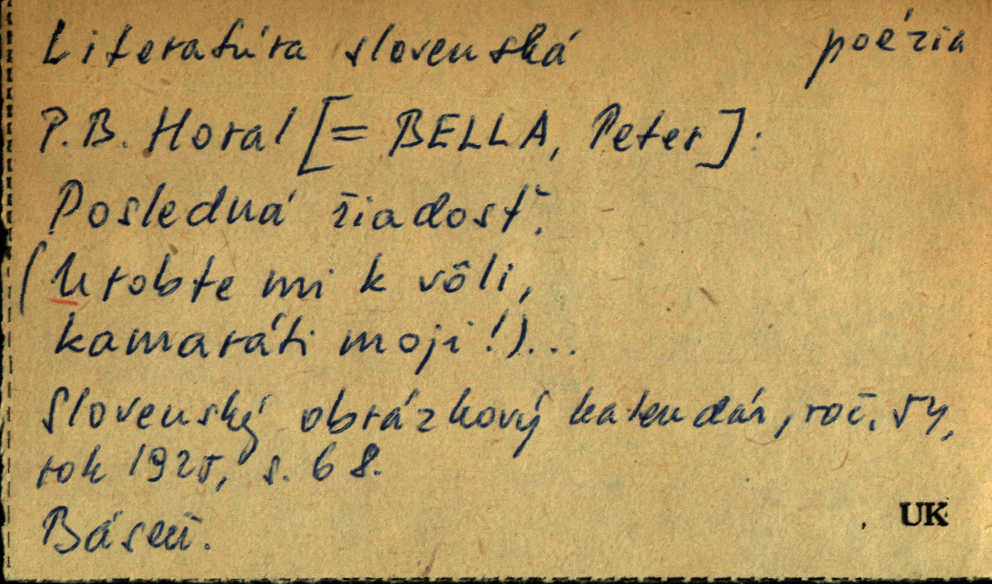 Literatúra slovenská poézia
P.B. Horal [= BELLA, Peter]:
Posledná žiadosť.
(Urobte mi k vôli,
kamaráti moji!)...
Slovenský obrázkový kalendár, roč. 54,
rok 1925, s. 68.
Báseň.
UK